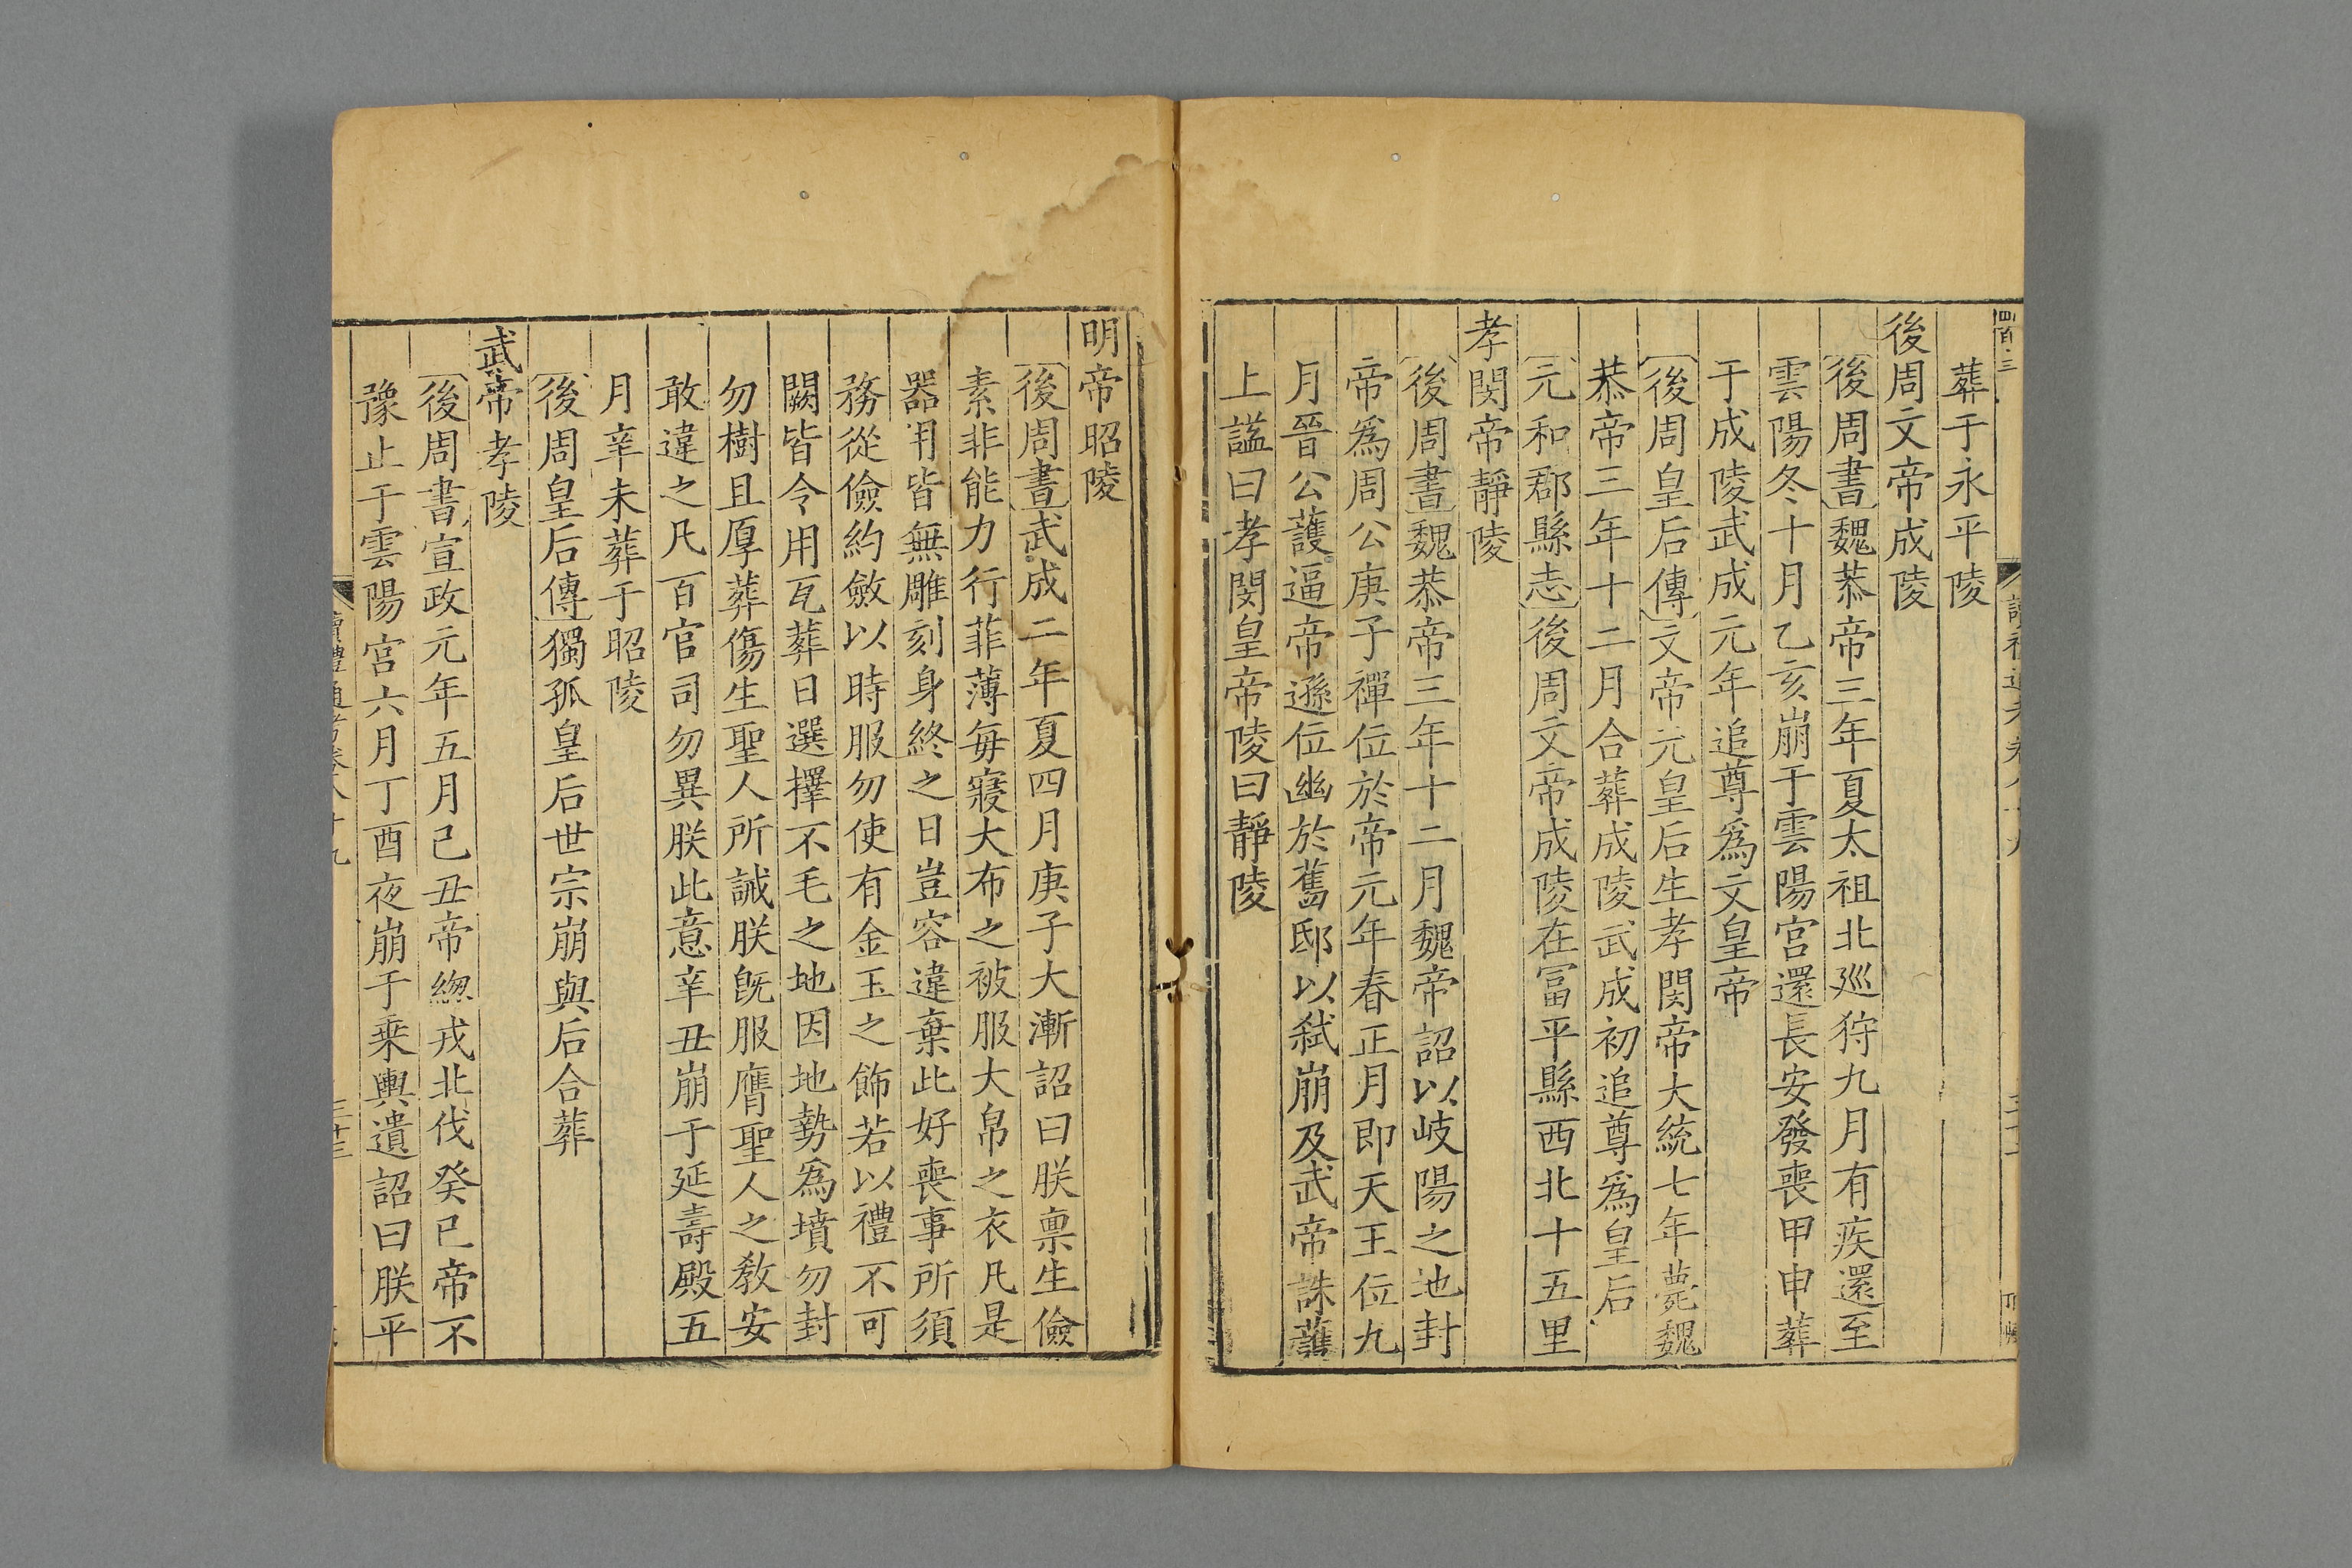 四百三
葬于永平陵
後周文帝成陵
〔後周書〕魏恭帝三年夏太祖北巡狩九月有疾還至
雲陽冬十月乙亥崩于雲陽宮還長安發喪甲申葬
于成陵武成元年追尊爲文皇帝
〔後周皇后傳〕文帝元皇后生孝閔帝大統七年薨魏
恭帝三年十二月合葬成陵武成初追尊爲皇后
〔元和郡縣志〕後周文帝成陵在冨平縣西北十五里
孝閔帝靜陵
〔後周書〕魏恭帝三年十二月魏帝詔以岐陽之地封
帝爲周公庚子禪位於帝元年春正月即天王位九
月晉公護逼帝遜位幽於舊邸以弒崩及武帝誅護
上謚曰孝閔皇帝陵曰靜陵
明帝昭陵
〔後周書〕武成二年夏四月庚子大漸詔曰朕禀生儉
素非能力行菲薄每寢大布之被服大帛之衣凡是
器用皆無雕刻身終之日豈容違棄此好喪事所須
務從儉約斂以時服勿使有金玉之飾若以禮不可
闕皆令用瓦葬日選擇不毛之地因地勢爲墳勿封
勿樹且厚葬傷生聖人所誡朕旣服膺聖人之敎安
敢違之凡百官司勿異朕此意辛丑崩于延壽殿五
月辛未葬于昭陵
〔後周皇后傳〕獨孤皇后世宗崩與后合葬
武帝孝陵
〔後周書〕宣政元年五月己丑帝緫戎北伐癸巳帝不
豫止于雲陽宮六月丁酉夜崩于乗輿遺詔曰朕平
讀禮通考卷八十九
三十三